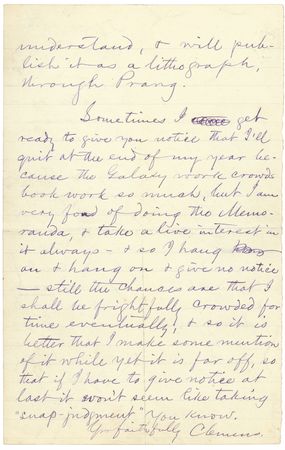 understand, & will pub-
lish it as a lithograph,
through Prang.
Sometimes I get
ready to give you notice that I'll
quit at the end of my year be-
cause the Galaxy work crowds
book work so much, but I am
very fond of doing the Memo-
randa, & take a live interest in
it always — & so I hang
on & hang on & give no notice
— still the chances are that I
shall be frightfully crowded for
time eventually, & so it is
better that I make some mention
of it while yet it is far off, so
that if I have to give notice at
last it won't seem like taking
"snap-judgment" you know.
Yrs faithfully Clemens.